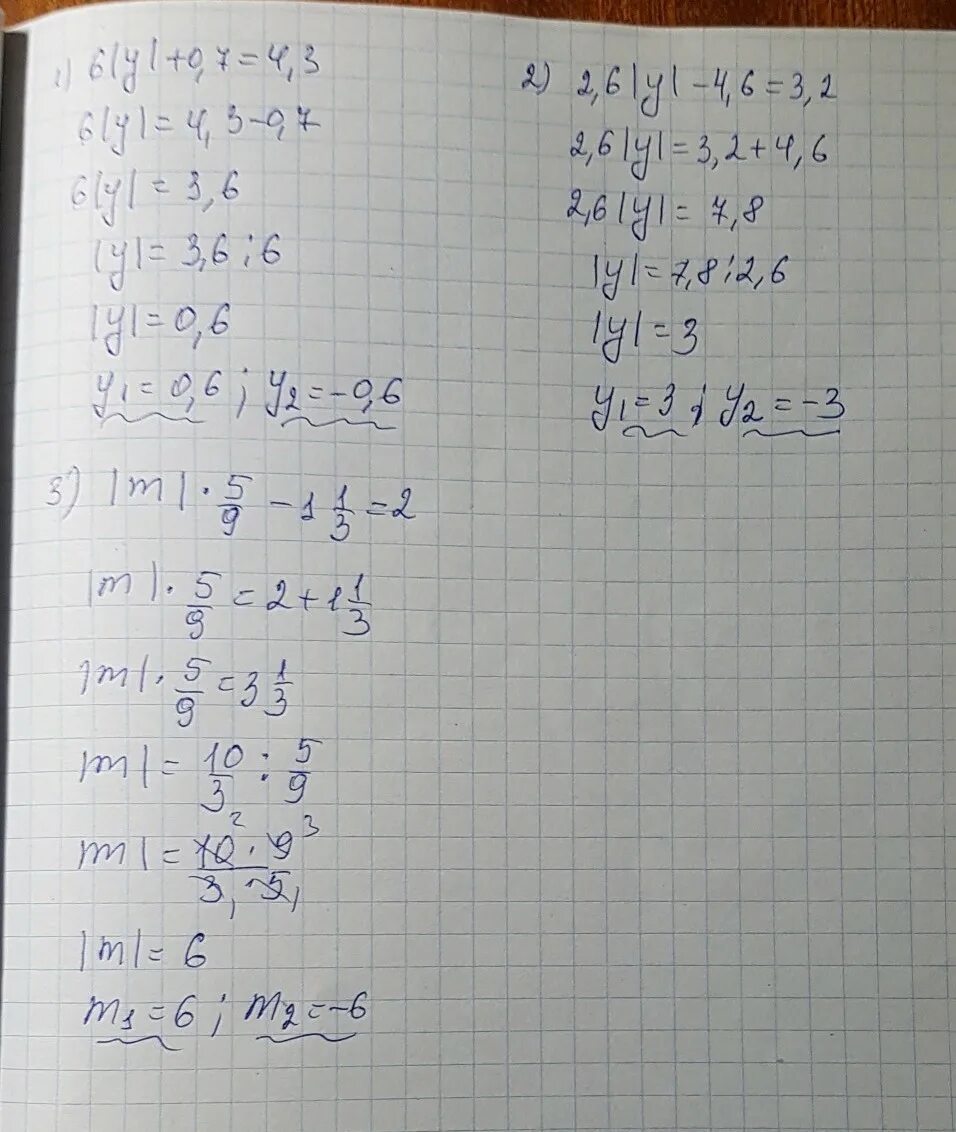 1) 6|y|+0,7=4,3
6|y|=4,3-0,7
6|y|=3,6
|y|=3,6:6
|y|=0,6
y₁=0,6; y₂=-0,6
2) 2,6|y|-4,6=3,2
2,6|y|=3,2+4,6
2,6|y|=7,8
|y|=7,8:2,6
|y|=3
y₁=3; y₂=-3
3) |m|·5/9-1 1/3=2
|m|·5/9=2+1 1/3
|m|·5/9=3 1/3
|m|=10/3:5/9
|m|=10²·9³/3₁·5₁
|m|=6
m₁=6; m₂=-6